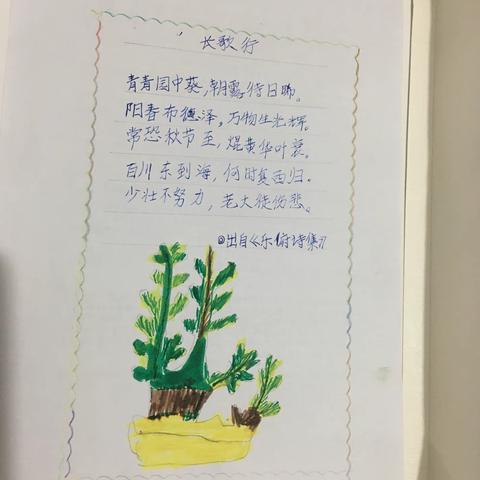 长歌行
青青园中葵,朝露待日晞。
阳春布德泽,万物生光辉。
常恐秋节至,焜黄华叶衰。
百川东到海,何时复西归。
少壮不努力,老大徒伤悲。
@出自《乐府诗集》